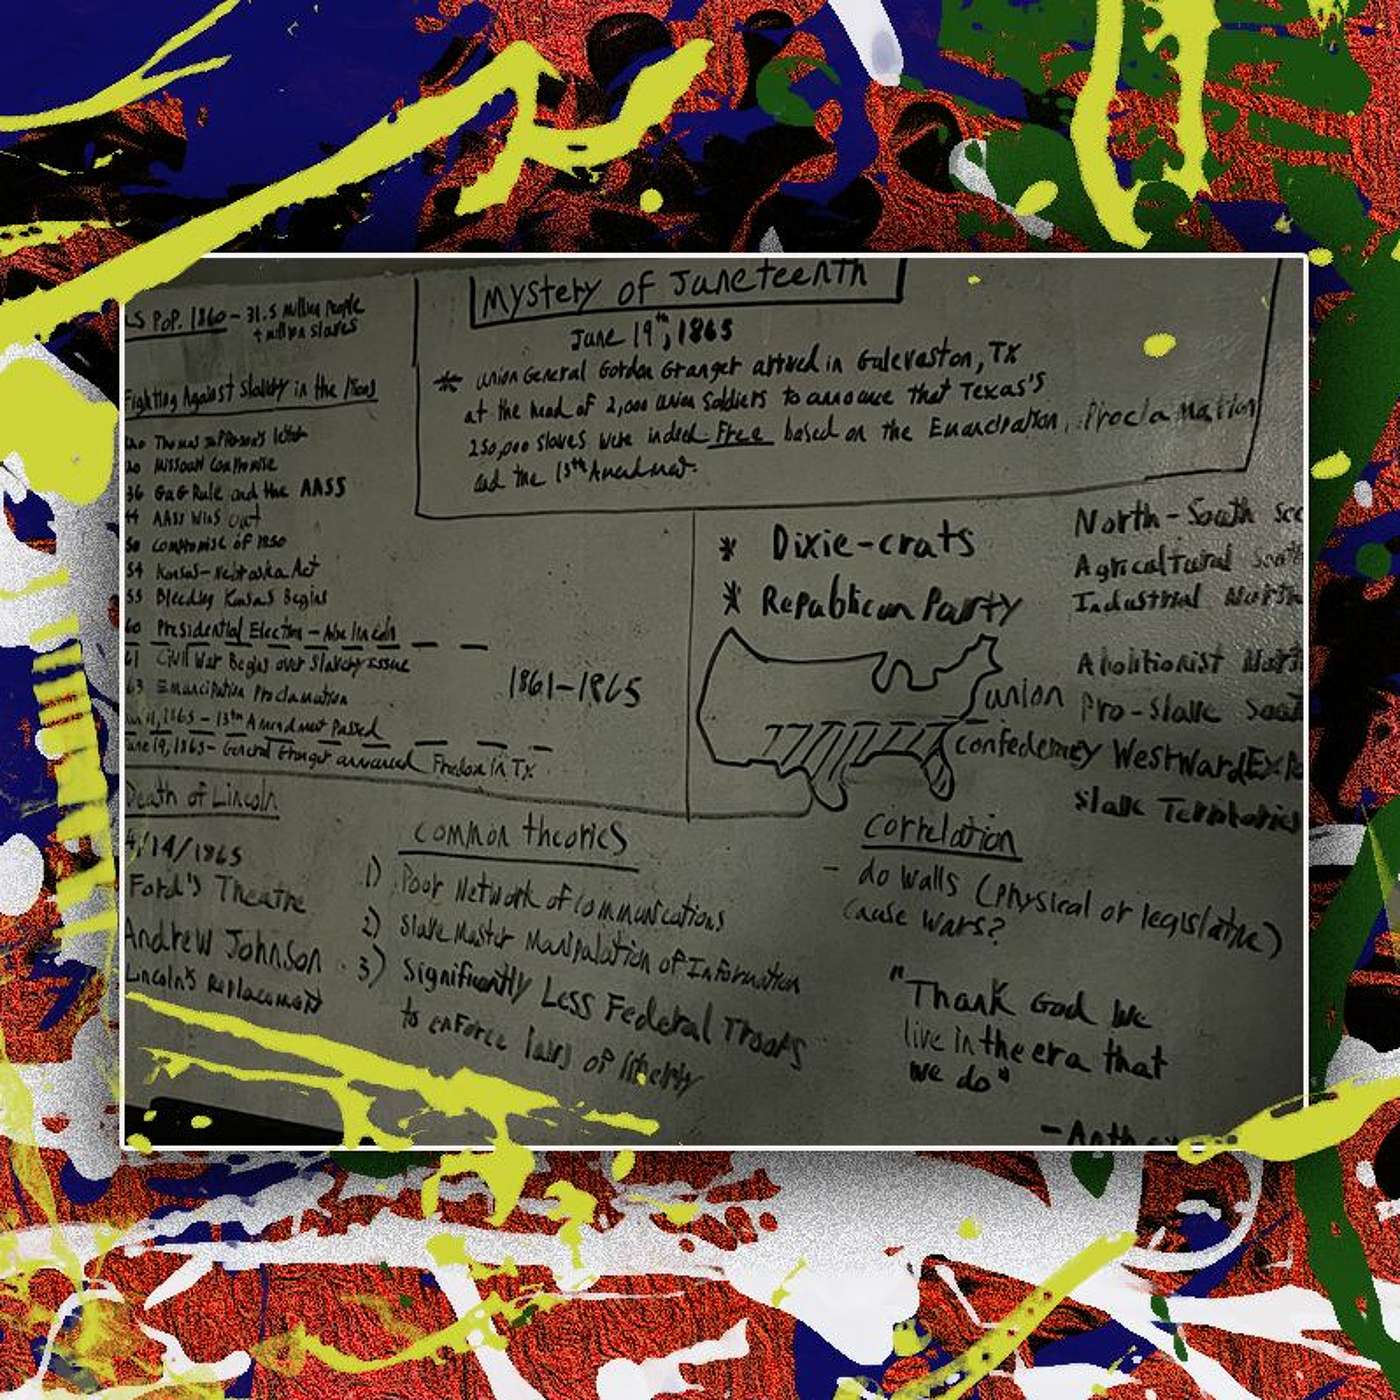 Mystery of Juneteenth
June 19th, 1865
* Union General Gordon Granger arrived in Galevaston, TX
at the head of 2,000 Union Soldiers to announce that Texas's
250,000 slaves were indeed Free based on the Emancipation Proclamation
and the 13th Amendment.
US POP. 1860 - 31.5 million People
4 million slaves
Fighting Against Slavery in the
Thomas Jefferson's letter
20 Missouri Compromise
36 Gag Rule and the AASS
44 AASS Wins out
50 Compromise of 1850
54 Kansas-Nebraska Act
55 Bleeding Kansas Begins
60 Presidential Election - Abe Lincoln
61 Civil War Begins over Slavery issue
63 Emancipation Proclamation
1865 - 13th Amendment Passed
June 19, 1865 - General Granger announced Freedom in TX
1861-1865
* Dixie-crats
* Republican Party
union
confederacy
North-South Sec
Agricultural South
Industrial North
Abolitionist North
Pro-Slave South
Westward Exp
Slave Territories
Death of Lincoln
4/14/1865
Ford's Theatre
Andrew Johnson
Lincoln's Replacement
Common theories
1) Poor Network of Communications
2) Slave Master Manipulation of Information
3) Significantly Less Federal Troops
to enforce laws of liberty
Correlation
- do walls (physical or legislative)
cause wars?
"Thank God we
live in the era that
we do"